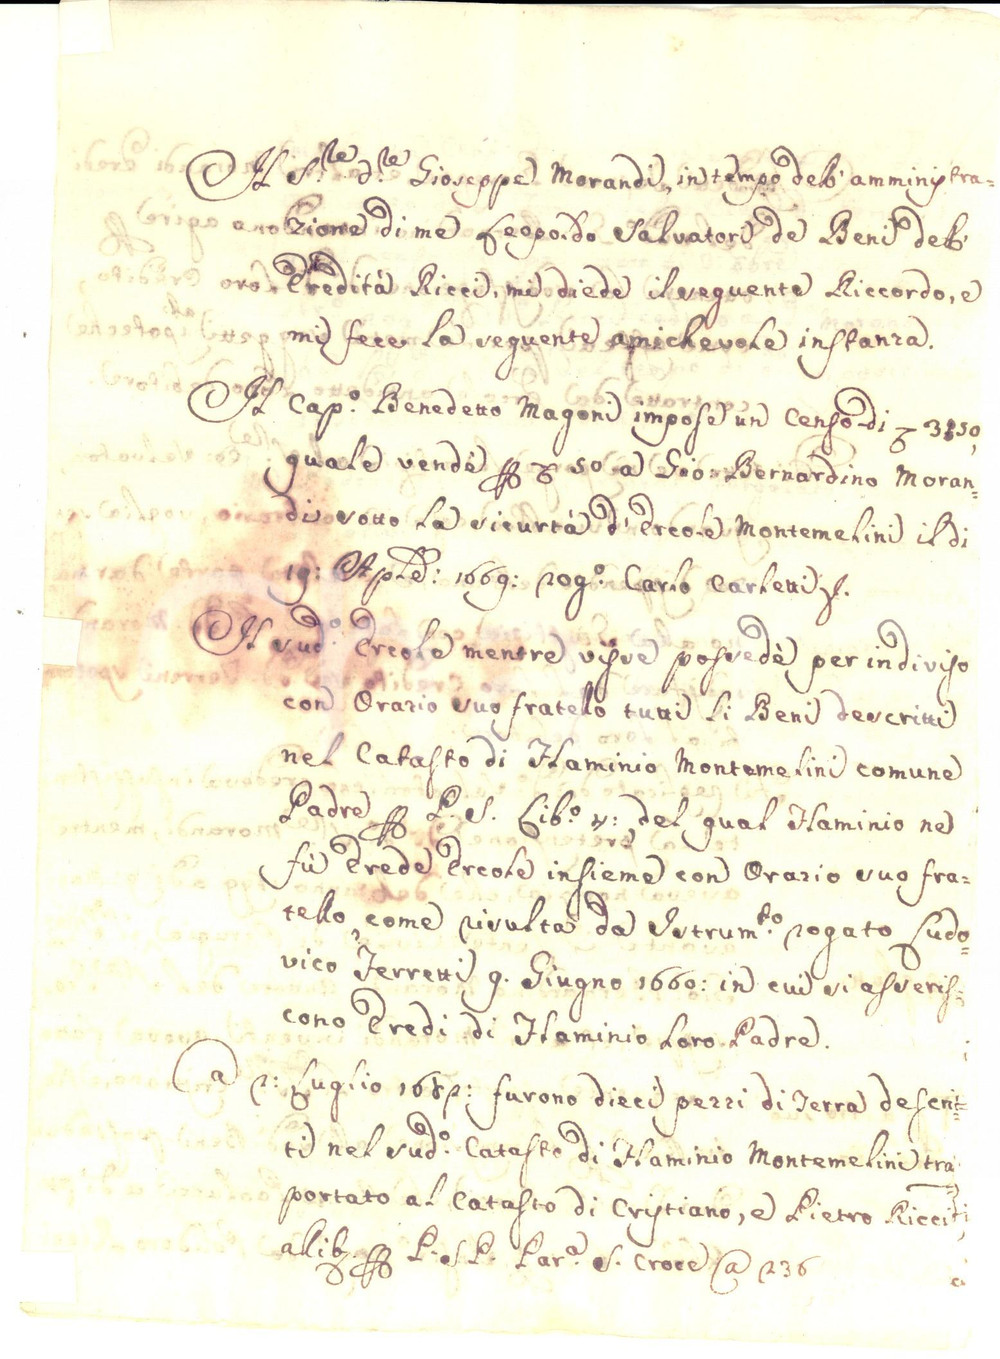 Il S.re d.re Gioseppe Morandi, in tempo dell' amministra=
zione di me Leopoldo Salvatori de Beni dell'
Eredità Ricci, mi diede il seguente Riccordo, e
mi fece la seguente amichevole instanza.
Il Cap.o Benedetto Magoni impose un Censo di 3150,
quale vendè 50 a Gio: Bernardino Moran=
di sotto la sicurtà d'Ercole Montemelini il dì
19: Aple: 1669: rog.o Carlo Carletti
Il sud.o Ercole mentre visse possedè per indiviso
con Orazio suo fratello tutti li Beni descritti
nel Catasto di Flaminio Montemelini comune
Padre P. S. Lib.o del qual Flaminio ne
fù Erede Ercole insieme con Orazio suo fra=
tello, come risulta da Istrum.to rogato Ludo=
vico Ferretti 9. Giugno 1660: in cui si asseris=
cono Eredi di Flaminio loro Padre.
a 2: Luglio furono dieci pezzi di Terra descrit=
ti nel sud.o Catasto di Flaminio Montemelini tra
portato al Catasto di Cristiano, e Pietro Ricci
alib. P. S. P. Par.a S. Croce a 236